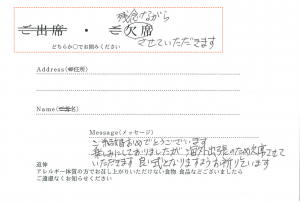 残念ながら
ご出席 ・ ご欠席
させていただきます
どちらか○でお囲みください
Address(ご住所)
Name(ご芳名)
Message(メッセージ)
ご結婚おめでとうございます
楽しみにしておりましたが 海外出張のため欠席させて
いただきます 良い式となりますようお祈りしています
追伸
アレルギー体質の方でお召し上がりいただけない食物 食品などございましたら
ご遠慮なくお知らせください